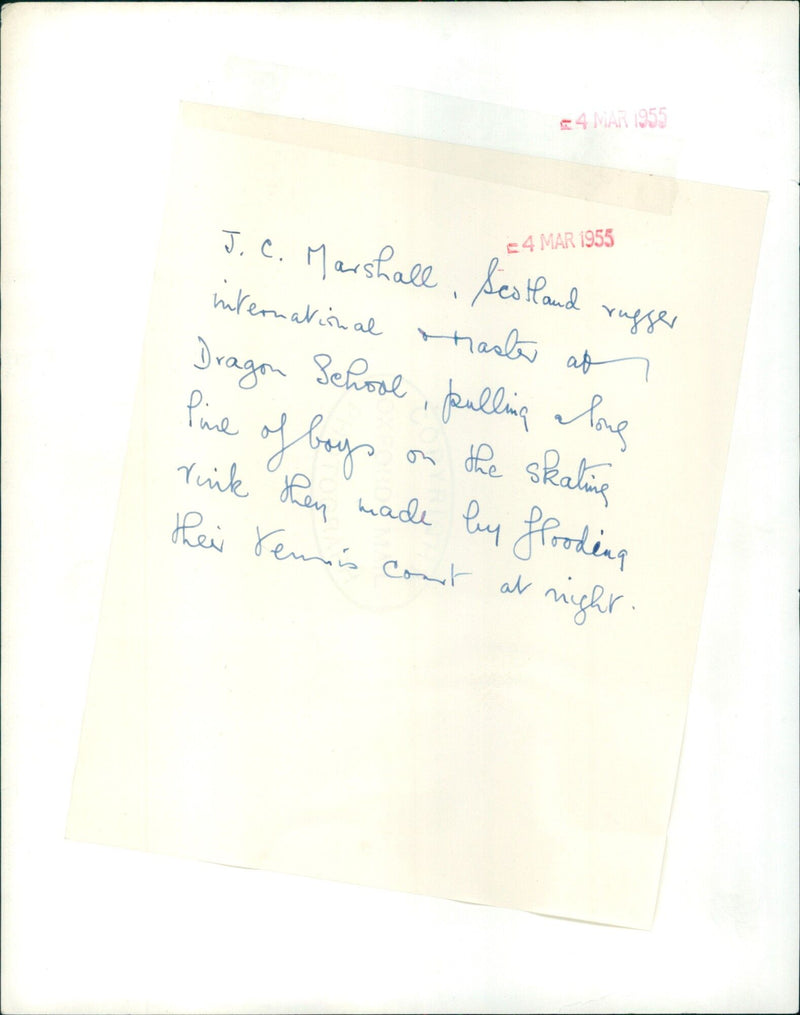 4 MAR 1955
4 MAR 1955
J. C. Marshall, Scotland rugger
international & master at
Dragon School, pulling a long
line of boys on the skating
rink they made by flooding
their tennis court at night.
COPYRIGHT
OXFORD MAIL